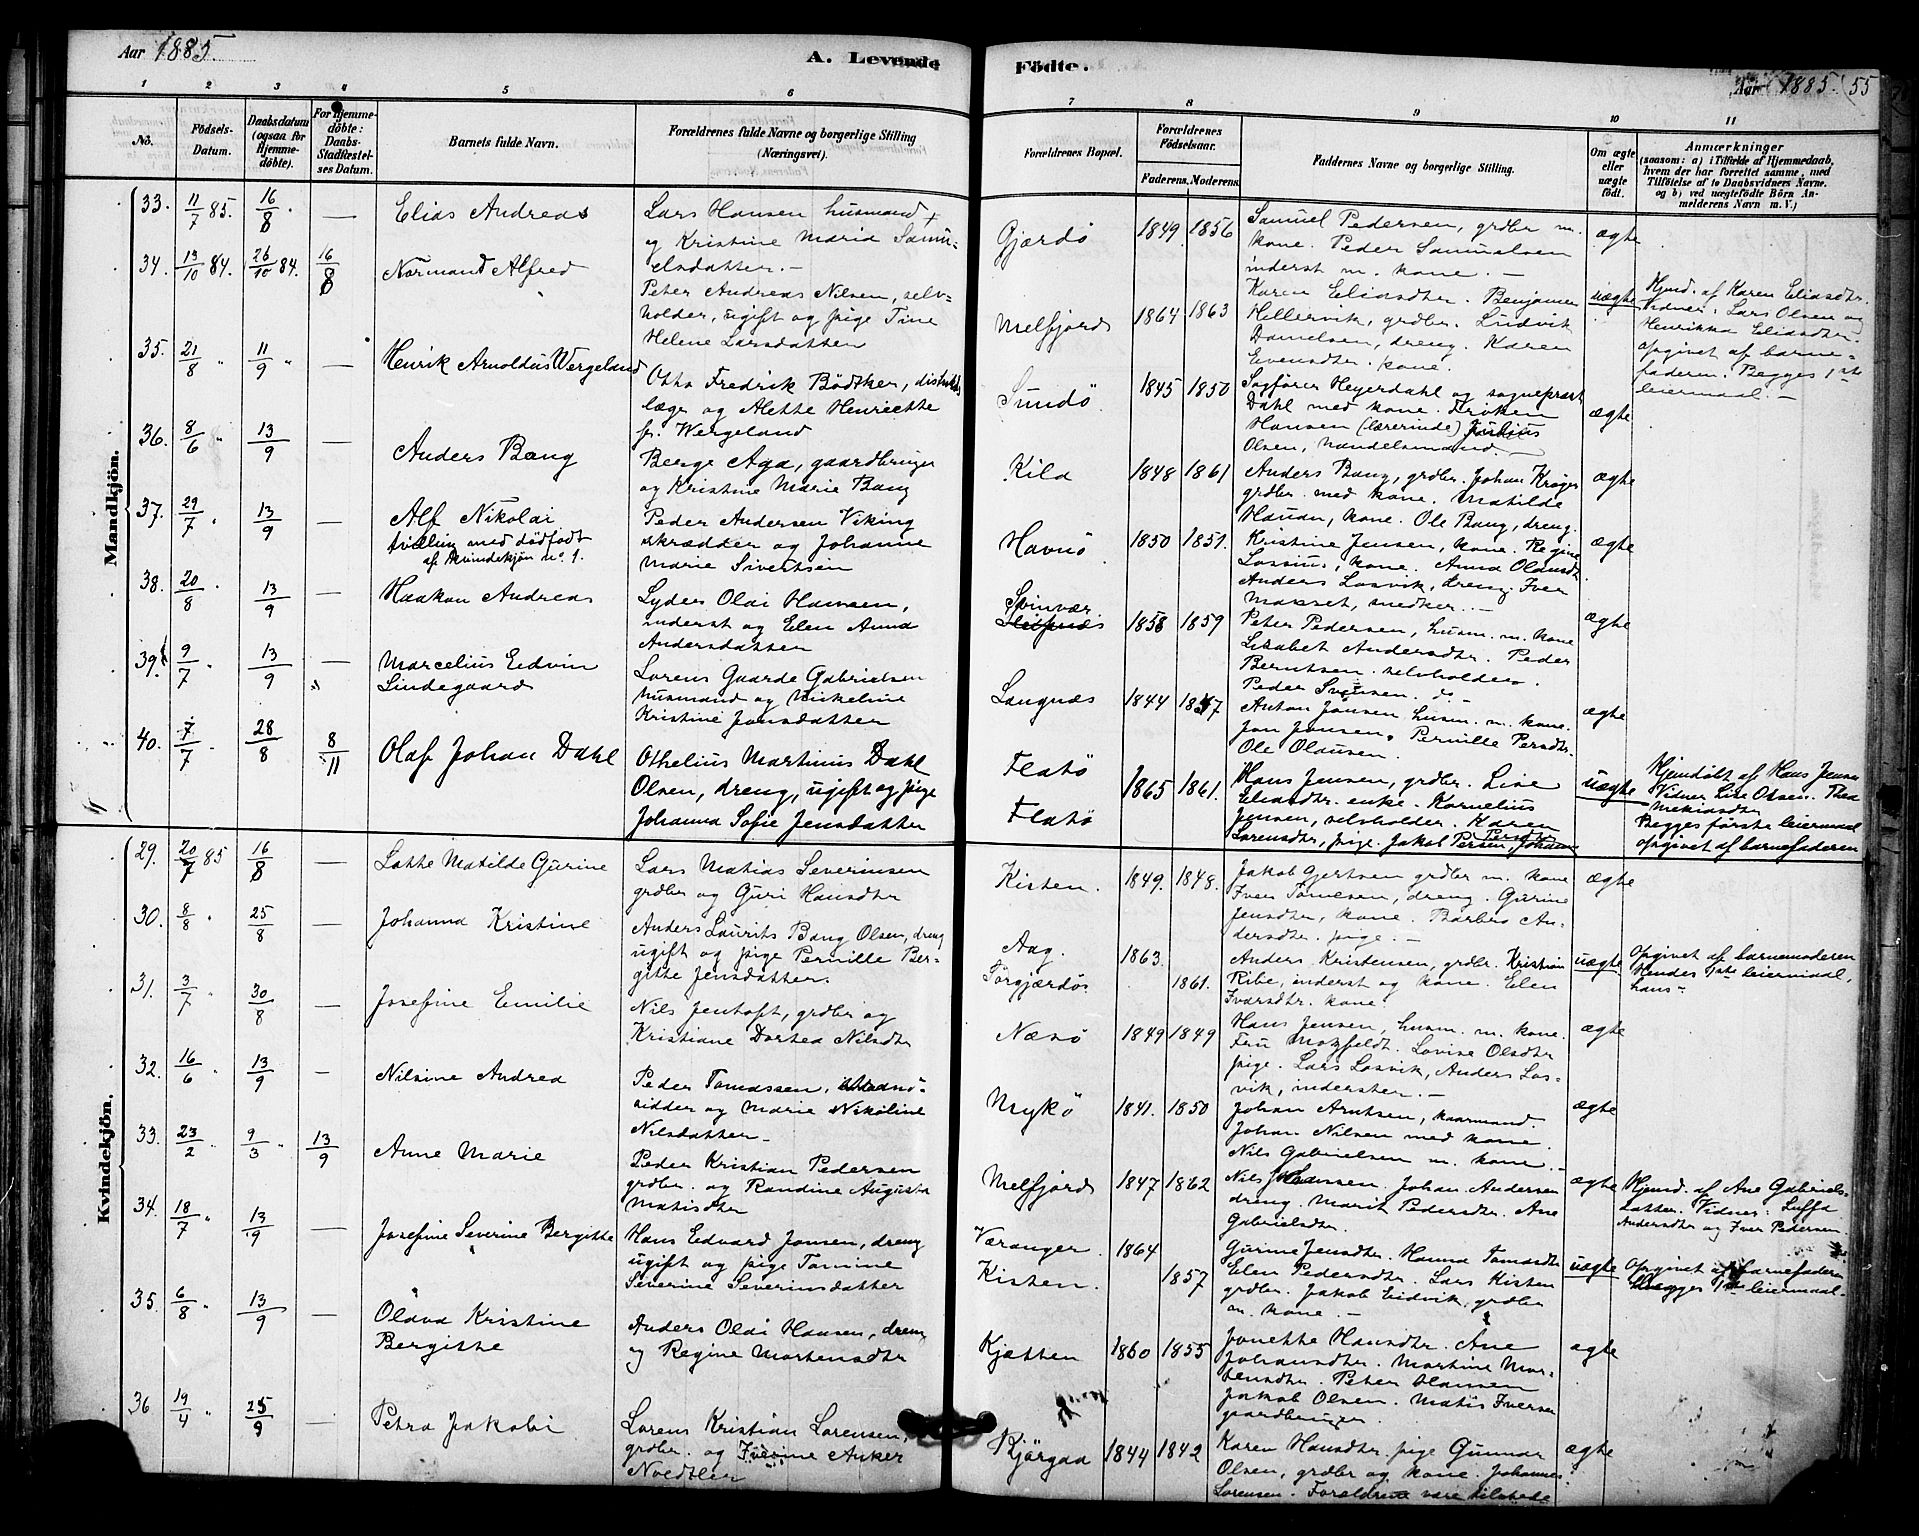 Aar 1885.
A. Levende
Födte.
Aar 1885. 55
1 2 3 4 5 6
7 8 9 10 11
No.
Födsels-Datum.
Daabsdatum (ogsaa for Hjemmedöbte).
For Hjemmedöbte: Daabs-Stadfæstelses Datum.
Barnets fulde Navn.
Forældrenes fulde Navne og borgerlige Stilling (Næringsvei).
Forældrenes Bopæl.
Forældrenes Födselsaar.
Faderens. Moderens.
Faddernes Navne og borgerlige Stilling.
Om ægte eller uægte födt.
Anmærkninger
(saasom: a) i Tilfælde af Hjemmedaab, hvem der har forrettet samme, med Tilföielse af to Daabsvidners Navne, og b) ved uægtefödte Börn Anmelderens Navn m. V.)
Mandkjön.
33. 11/7 85. 16/8 — Elias Andreas
Lars Hansen husmand
og Kristine Maria Samu-
elsdatter. —
Gjærdö 1849. 1856
Samuel Pedersen, grdbr. m.
kone. Peder Samuelsen
inderst m. kone. —
ægte
34. 13/10 84. 26/10 84. 16/8 Normand Alfred
Peter Andreas Nilsen, selv-
holder, ugift og pige Tine
Helene Larsdatter
Melfjord 1864 1863
Karen Eliasdtr. Benjamin
Hellervik, grdbr. Ludvik
Danielsen, dreng. Karen
Evensdtr. kone.
uægte
Hjmd. af Karen Eliasdtr.
Vidner: Lars Olsen og
Henrikka Eliasdtr.
opgivet af barne-
faderen. Begges 1ste
leiermaal. —
35. 21/8 " 11/9 " — Henrik Arnoldus Wergeland
Otto Fredrik Bödtker, distrikts
læge og Alette Henriette
f. Wergeland
Sundö. 1845 1850
Sagförer Heyerdahl og sogneprest
Dahl med kone. Fröken
Hansen (lærerinde) Julius
Olsen, handelsmand.
ægte
36. 8/6 " 13/9 — Anders Bang
Berge Aga, gaardbruger
og Kristine Marie Bang
Kila 1848 1861
Anders Bang, grdbr. Johan Kröger
grdbr. med kone. Matilde
Hauan, kone. Ole Bang, dreng.
ægte
37. 29/7 " 13/9 — Alf Nikolai
tvilling med dödfödt
af Kvindekjön no. 1.
Peder Andersen Viking
skrædder og Johanne
Marie Sivertsen
Havnö 1850 1851.
Kristine Jensen, kone. Regine
Lossius, kone. Anna Olausdtr
Anders Losvik, dreng. Iver
Masset, snedker. —
ægte
38. 20/8 " 13/9 — Haakon Andreas
Lyder Olai Hansen,
inderst og Elen Anna
Andersdatter
Svinvær 1858 1859
Peter Pedersen, husm. m. kone
Lisabet Andersdtr. Peder
Berntsen. selvholder.
Peder Svensen. do
ægte
39. 9/7 " 13/9 — Marcelius Edvin
Lindegaard
Lorens Gaarde Gabrielsen
husmand og Mikeline
Kristine Jonsdatter
Langnæs 1844 1857
Anton Jonsen husm. m. kone.
Jon Jonsen. Pernille Persdtr.
Ole Olausen.
ægte
40. 7/7 " 28/8 8/11 Olaf Johan Dahl
Othelius Martinus Dahl
Olsen, dreng, ugift og pige
Johanna Sofie Jensdatter
Flatö
Flatö
1865 1861.
Hans Jensen, grdbr. Lise
Eliasdtr. enke. Kornelius
Jensen, selvholder. Karen
Sorensdtr, pige. Jakob Persen, Johanna Persdtr
uægte
Hjemdöbt af Hans Jensen
Vidner Lise Olsen. Thea
Mekiasdtr
Begges förste leiermaal
opgivet af barnefaderen
Kvindekjön.
29. 20/7 85 16/8 — Lotte Matilde Gurine
Lars Matias Severinsen
grdbr og Guri Hansdtr
Kisten. 1849. 1848.
Jakob Gjertsen grdbr m. kone
Iver Tomesen, dreng. Gurine
Jensdtr, kone. Barbro An-
dersdtr. pige. —
ægte
30. 8/8 " 25/8 — Johanna Kristine
Anders Laurits Bang Olsen, dreng
ugift og pige Pernille Ber-
gitte Jensdatter.
Aag.
Torgjærdö.
1863. 1861.
Anders Kristensen, grdbr. Kristian
Ribe, inderst og kone. Elen
Ivarsdtr. kone.
uægte
Opgivet af barnemoderen
Hendes 1ste leiermaal,
hans "
31. 3/7 " 30/8 — Josefine Emilie
Nils Jentoft, grdbr og
Kristiane Dortea Nilsdtr
Næsö 1849 1849
Hans Jensen, husm. m. kone.
Fru Motzfeldt. Lovise Olsdtr
pige. Lars Losvik, Anders Los-
vik, inderster. —
ægte
32. 16/6 " 13/9 — Nilsine Andrea
Peder Tomassen,
sidder og Marie Nikoline
Nilsdatter
Mykö 1841. 1850
Johan Arntsen, kaarmand.
Johan Nilsen med kone.
Nils Gabrielsen m. kone. —
ægte
33. 23/2 " 9/3 " 13/9 Anne Marie
Peder Kristian Pedersen
grdbr. og Randine Augusta
Matisdtr
Melfjord 1847 1862
Nils Johansen. Johan Andersen
dreng. Marit Pedersdtr. Ane
Gabrielsdtr.
ægte
Hjmd. af Ane Gabriels-
datter. Vidner: Luffa
Andersdtr og Iver Pedersen
34. 18/7 " 13/9 — Josefine Severine Bergitte
Hans Edvard Jonsen, dreng
ugift og pige Tomine
Severine Severinsdatter
Væranger.
Kisten.
1864 1857
Gurine Jensdtr. Hanna Tomasdtr
Elen Pedersdtr. Lars Kisten
grdbr. Jakob Eidvik, grdbr
m. kone. —
uægte
Opgivet af barnefaderen
Begges 1ste leiermaal.
35. 6/8 " 13/9 — Olava Kristine
Bergitte
Anders Olai Hansen, dreng
og Regine Mortensdtr
Kjetten 1860 1855
Jonette Hansdtr. Ane
Johansdtr. Martine Mor-
tensdtr. Peter Hansen
Jakob Olsen. Matis Iversen
gaardbruger.
ægte
36 19/4 " 25/9 — Petra Jakobi
Lorens Kristian Lorensen,
grdbr. og Iverine Anker
Noedtler
Kjörgaa 1844 1842
Karen Hansdtr. pige Gunnar
Olsen, grdbr og kone. Johannes
Lorensen. Forældrene vare tilstede
ægte